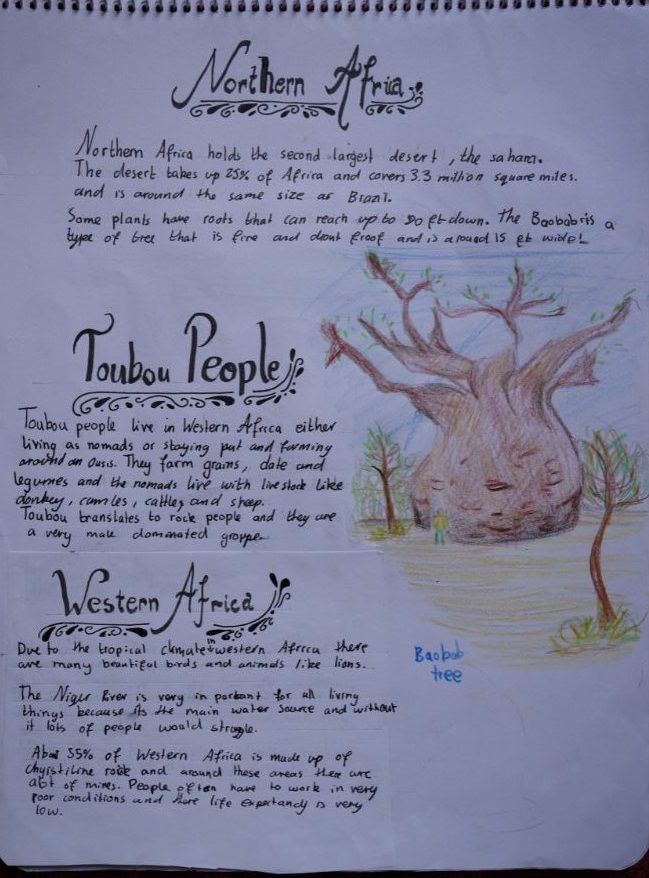 Northern Africa
Northern Africa holds the second largest desert, the sahara.
The desert takes up 25% of Africa and covers 3.3 million square miles.
and is around the same size as Brazil.
Some plants have roots that can reach up to 50 ft down. The Baobabris a
type of tree that is fire and drout froof and is around 15 ft wide!
Toubou People
Toubou people live in Western Africa either
living as nomads or staying put and farming
around an Oasis. They farm grains, date and
legumes and the nomads live with livestock like
donkey, camles, cattles and sheep.
Toubou translates to rock people and they are
a very male dominated groupe
Western Africa
Due to the tropical climate in western Africa there
are many beautiful birds and animals like lions.
The Niger River is very in portant for all living
things because its the main water source and without
it lots of people would struggle.
55% of Western Africa is made up of
rock and around these areas there are
alot of mines. People often have to work in very
poor conditions and there life expertandy is very
low.
Baobab
tree